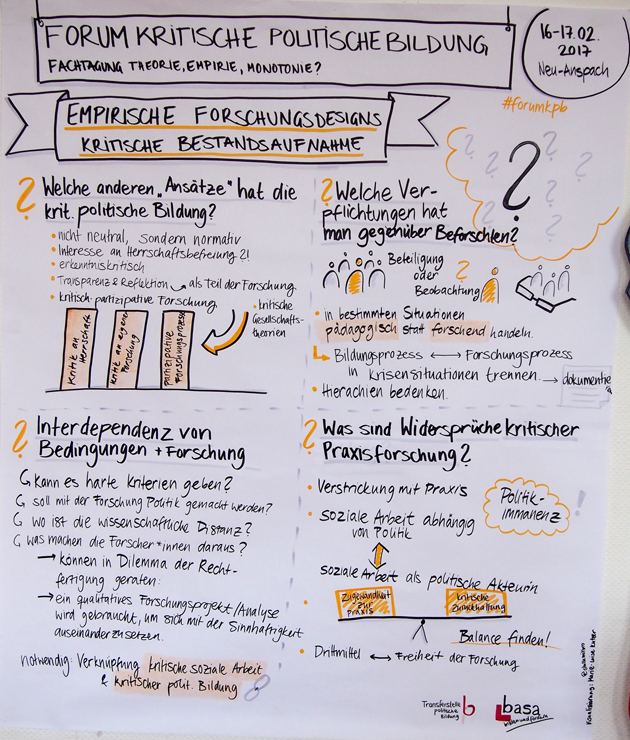 FORUM KRITISCHE POLITISCHE BILDUNG
FACHTAGUNG THEORIE, EMPIRIE, MONOTONIE?
16-17.02.
2017
Neu-Anspach
#forumkpb
EMPIRISCHE FORSCHUNGSDESIGNS
KRITISCHE BESTANDSAUFNAHME
? Welche anderen „Ansätze" hat die
krit. politische Bildung?
• nicht neutral, sondern normativ
• Interesse an Herrschaftsbefreiung?!
• erkenntniskritisch
• Transparenz & Reflektion → als Teil der Forschung
• kritisch-partizipative Forschung
kritische
Gesellschafts-
theorien
Kritik an
Herrschaft
Kritik an eigener
Forschung
partizipative
Forschungsprozesse
? Welche Ver-
pflichtungen hat
man gegenüber Beforschten?
Beteiligung
oder
Beobachtung
?
• in bestimmten Situationen
pädagogisch statt forschend handeln.
Bildungsprozess ↔ Forschungsprozess
in Krisensituationen trennen. → dokumentie
• Hierachien bedenken.
? Interdependenz von
Bedingungen + Forschung
kann es harte Kriterien geben?
soll mit der Forschung Politik gemacht werden?
wo ist die wissenschaftliche Distanz?
was machen die Forscher*innen daraus?
→ können in Dilemma der Recht-
fertigung geraten:
→ ein qualitatives Forschungsprojekt/Analyse
wird gebraucht, um sich mit der Sinnhaftigkeit
auseinanderzusetzen.
notwendig: Verknüpfung kritische soziale Arbeit
& kritischer polit. Bildung
? Was sind Widersprüche kritischer
Praxisforschung?
• Verstrickung mit Praxis
• soziale Arbeit abhängig
von Politik
Politik-
immanenz
!
soziale Arbeit als politische Akteurin
Zugewandtheit
zur
Praxis
kritische
Zurückhaltung
Balance finden!
• Drittmittel ↔ Freiheit der Forschung
Transferstelle
politische
Bildung
basa